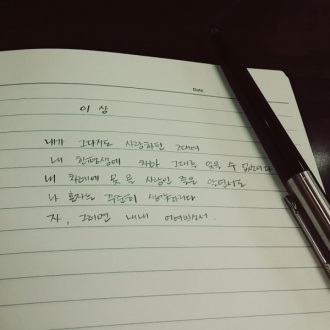 Date.
이 상
내가 그다지도 사랑하던 그대여
내 한평생에 차마 그대를 잊을 수 없소이다
내 차례에 못 올 사랑인 줄은 알면서도
나 혼자는 꾸준히 생각하리라
자, 그러면 내내 어여쁘소서.